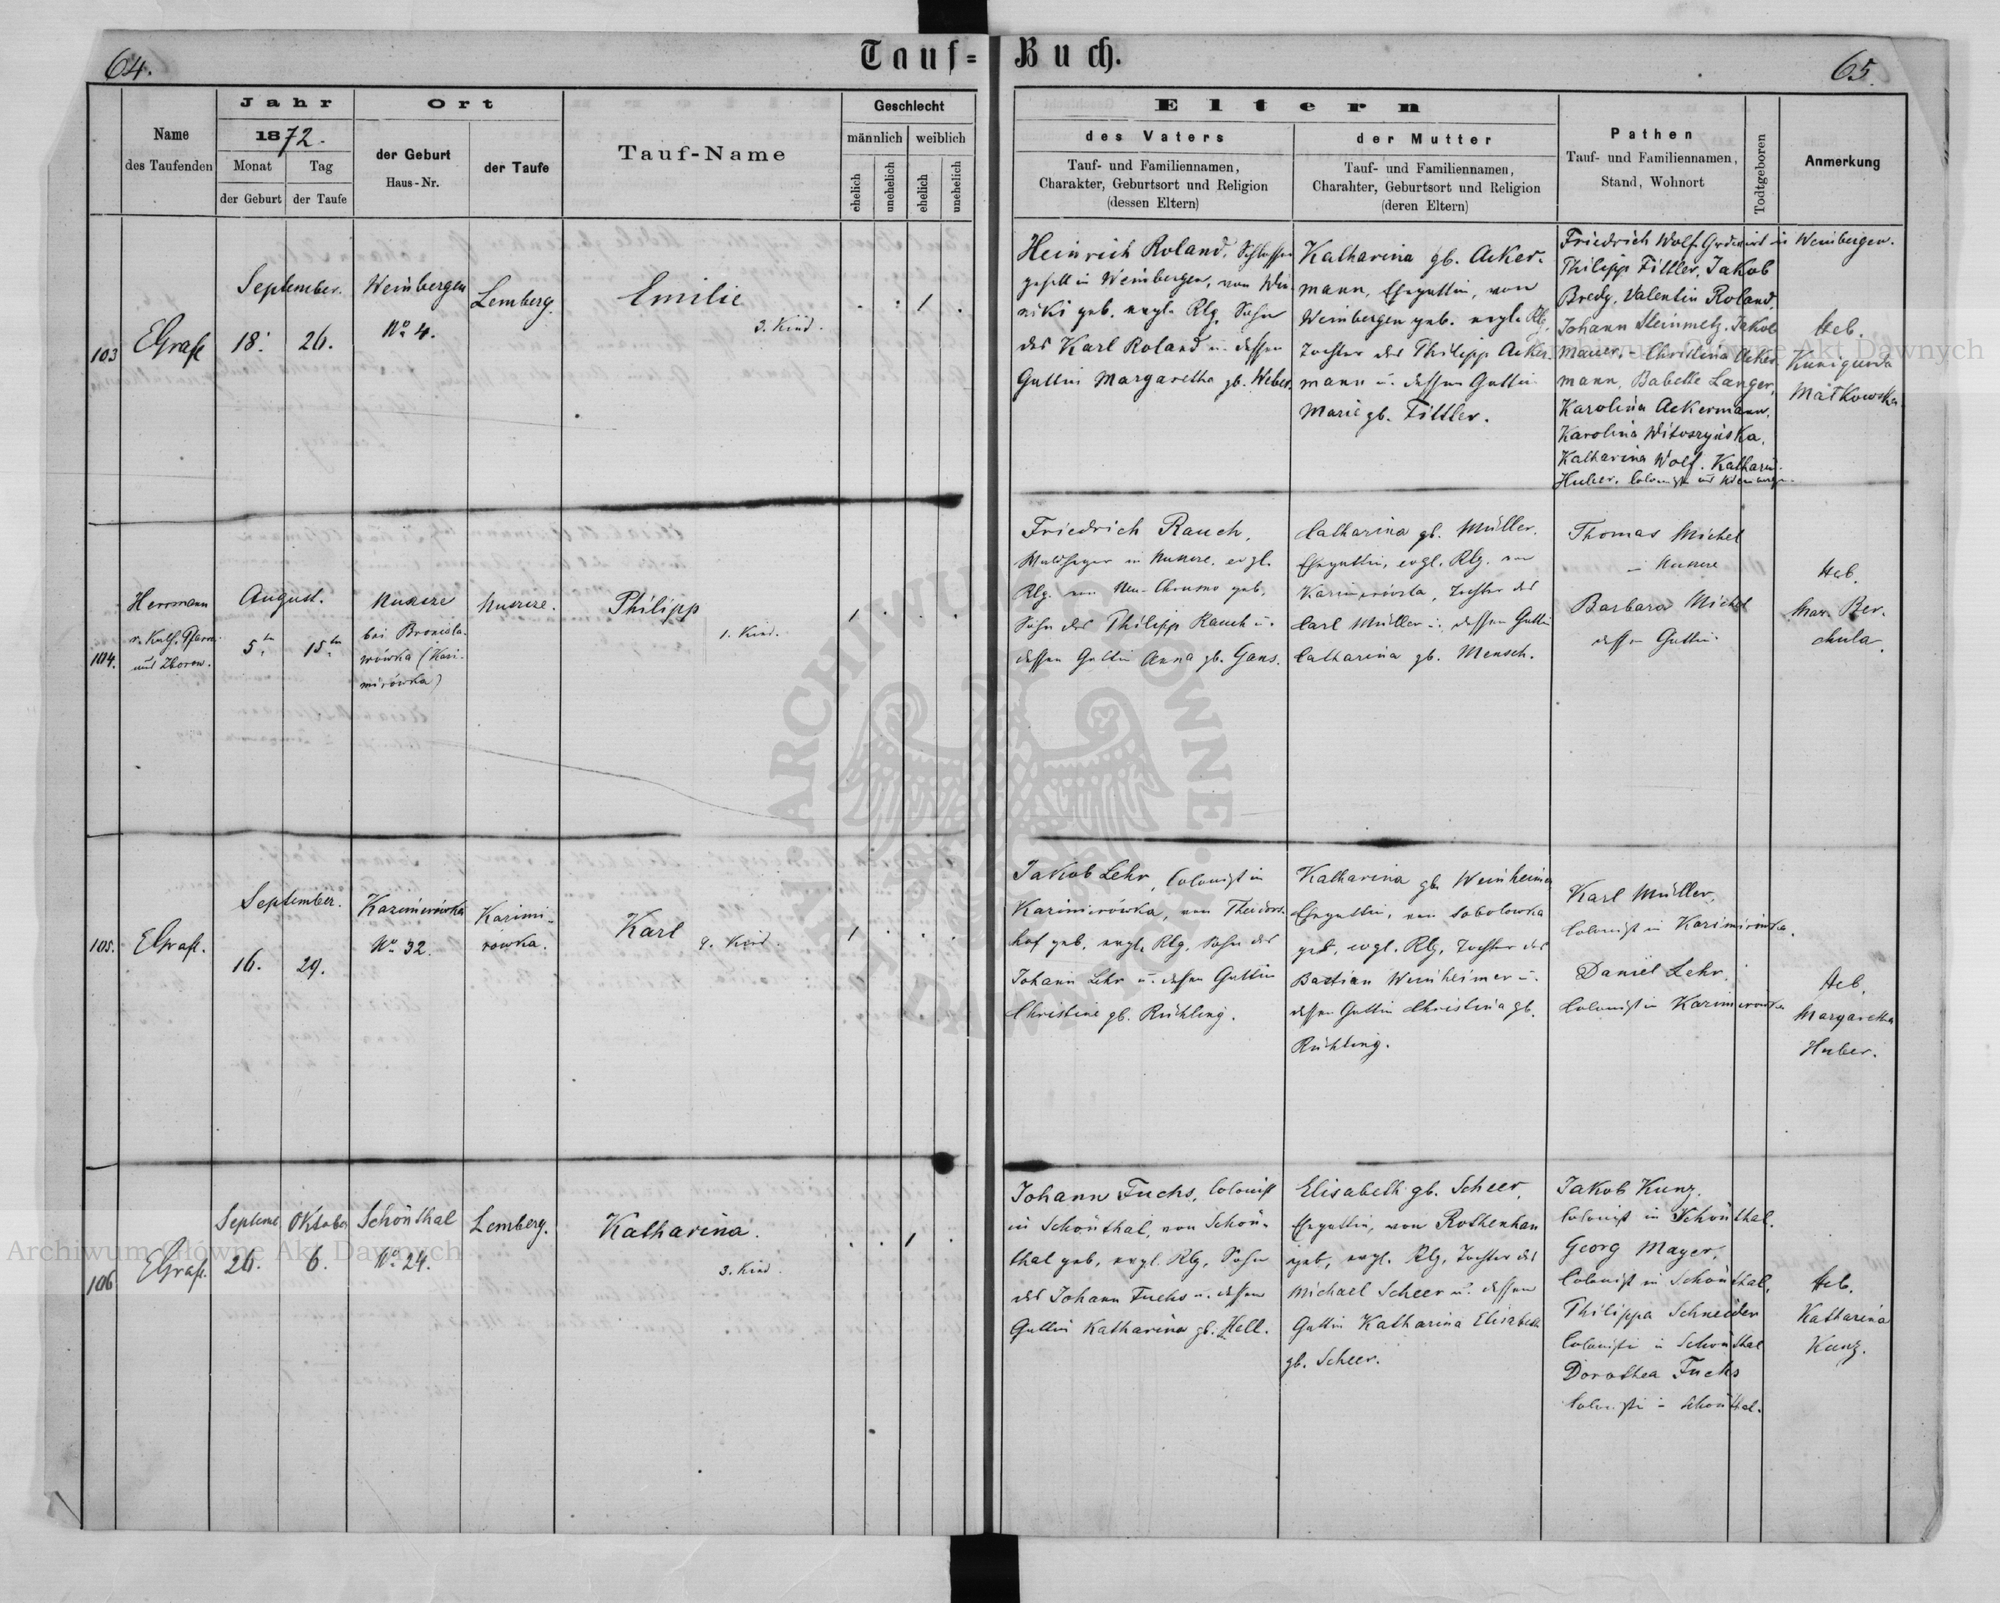 64.
Tauf=
Buch.
65.
Name
des Taufenden
Jahr
1872.
Monat
der Geburt
Tag
der Taufe
Ort
der Geburt
Haus-Nr.
der Taufe
Tauf-Name
Geschlecht
männlich
weiblich
ehelich
unehelich
ehelich
unehelich
Eltern
des Vaters
Tauf- und Familiennamen,
Charakter, Geburtsort und Religion
(dessen Eltern)
der Mutter
Tauf- und Familiennamen,
Charahter, Geburtsort und Religion
(deren Eltern)
Pathen
Tauf- und Familiennamen,
Stand, Wohnort
Todtgeboren
Anmerkung
103
September.
18.
26.
Weinbergen
No 4.
Lemberg.
Emilie
3. Kind.
1
Heinrich Roland, Schlosser
gesell in Weinbergen, von Win-
niki geb. evgl. Rlg. Sohn
des Karl Roland u. dessen
Gattin Margaretha gb. Weber.
Katharina gb. Acker-
mann, Ehegattin, von
Weinbergen geb. evgl. Rlg.
Tochter des Philipp Acker-
mann u. dessen Gattin
Marie gb. Fittler.
Friedrich Wolf Grdwirt in Weinbergen.
Philipp Fittler, Jakob
Bredy, Valentin Roland
Johann Steinmetz, Jakob
Mauer, - Christina Acker
mann, Babette Langer,
Karolina Ackermann,
Karolina Witoszyńska,
Katharina Wolf. Katharin.
Huber.
Heb.
Kunigunda
Matkowska
104.
Herrmann
August.
5ten
15ten
bei Bronisla-
wówka (Kasi-
mirówka)
Philipp
1. Kind.
1
Friedrich Rauch,
Waldheger in evgl.
Rlg. von Neu-Chrusno geb.
Sohn des Philipp Rauch u.
dessen Gattin Anna gb. Gans.
Catharina gb. Müller.
Ehegattin, evgl. Rlg. von
Kazimirówka, Tochter des
Carl Müller u. dessen Gattin
Catharina gb. Mensch.
Thomas Michel
Barbara Michel
dessen Gattin
Heb.
105.
September.
16.
29.
Kazimirówka
No 32.
Kazimi-
rówka.
Karl
9. Kind.
1
Jakob Lehr, Colonist in
Kazimirówka, von Theodors-
hof geb. evgl. Rlg. Sohn des
Johann Lehr u. dessen Gattin
Christine gb. Rühling.
Katharina gb. Weinheimer
Ehegattin, von Sobolowka
geb. evgl. Rlg. Tochter des
Bastian Weinheimer u.
dessen Gattin Christina gb.
Rühling.
Karl Müller,
Colonist in Kazimirówka.
Daniel Lehr
Colonist in Kazimirówka
Heb.
Margaretha
Huber.
106
Septemb
26.
Oktober
6.
Schönthal
No 24.
Lemberg.
Katharina.
3. Kind
1
Johann Fuchs, Colonist
in Schönthal, von Schön-
thal geb. evgl. Rlg. Sohn
des Johann Fuchs u. dessen
Gattin Katharina gb. Hell.
Elisabeth gb. Scheer,
Ehegattin, von Rothenhan
geb. evgl. Rlg. Tochter des
Michael Scheer u. dessen
Gattin Katharina Elisabeth
gb. Scheer.
Jakob Kunz.
Colonist in Schönthal.
Georg Mayer,
Colonist in Schönthal,
Philippa Schneider
Colonistin in Schönthal
Dorothea Fuchs
Colonistin in Schönthal.
Heb.
Katharina
Kunz.
Archiwum Główne Akt Dawnych
Archiwum Główne Akt Dawnych